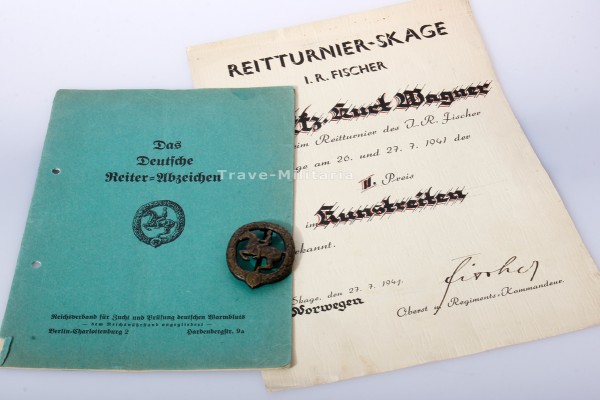 REITTURNIER-SKAGE
I. R. FISCHER
Kurt Wagner
im Reitturnier des I. R. Fischer
age am 26. und 27. 7. 1941 der
Preis
im
Kunstreiten
ekannt.
Skage, den 27. 7. 1941.
Norwegen
Fischer
Oberst u. Regiments-Kommandeur.
Das
Deutsche
Reiter=Abzeichen
Reichsverband für Zucht und Prüfung deutschen Warmbluts
— dem Reichsnährstand angegliedert —
Berlin-Charlottenburg 2 Hardenbergstr. 9a
Trave-Militaria